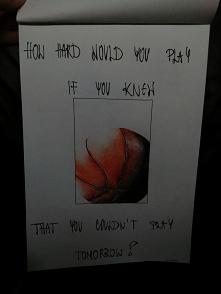 HOW HARD WOULD YOU PLAY
IF YOU KNEW
THAT YOU COULDN'T PLAY
TOMORROW?